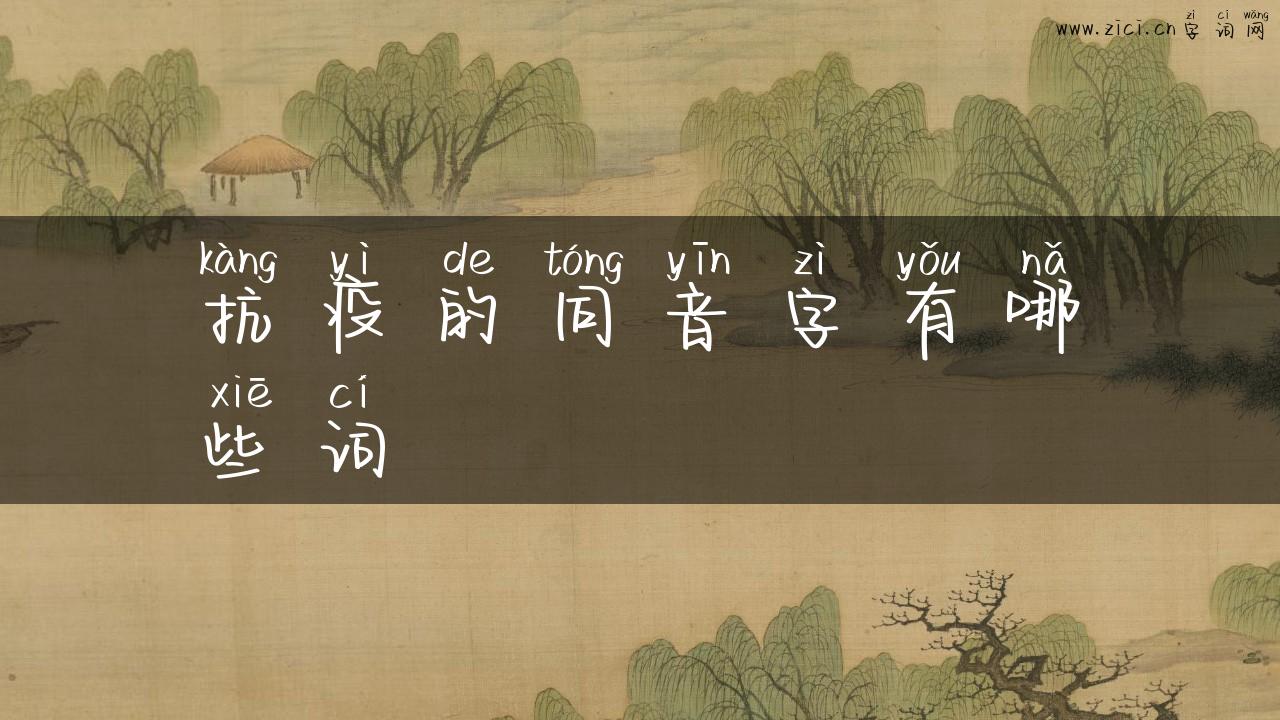 zì cí wǎng
www.zici.cn 字词网
kàng yì de tóng yīn zì yǒu nǎ
抗疫的同音字有哪
xiē cí
些词